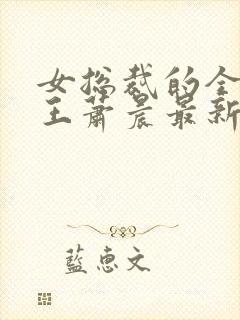 女总裁的全
王萧晨最新
藍惠文